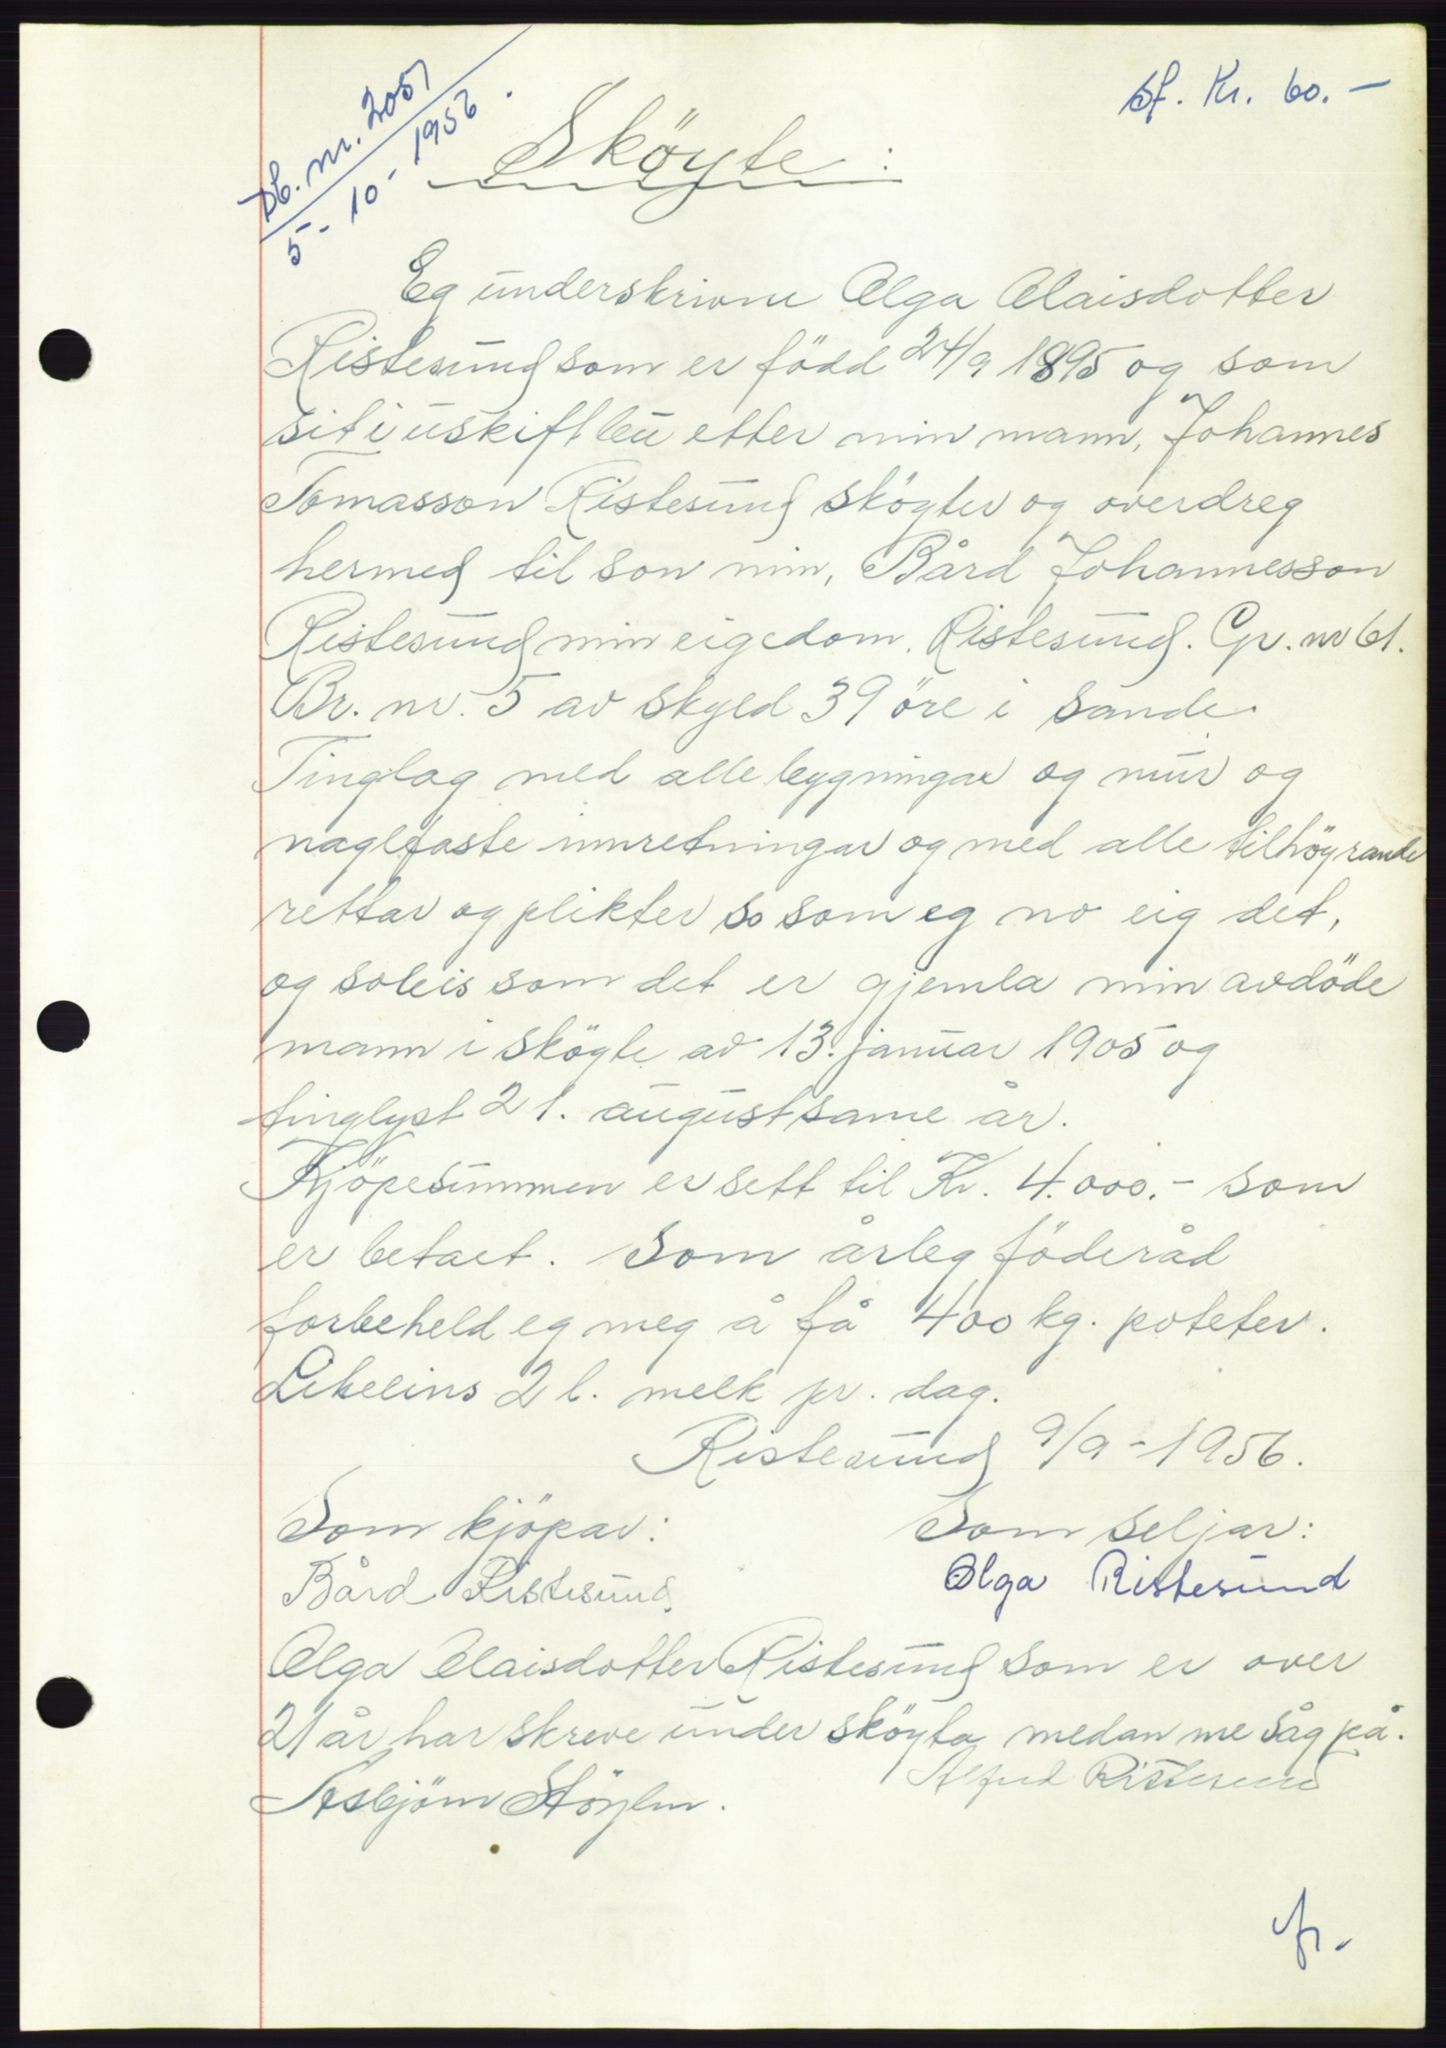 Db. nr. 2051
5-10-1956.
St. Kr. 60.-
Sköyte:
Eg underskrivne Olga Olaisdotter
Ristesund som er född 24/9 1895 og som
sit i uskift bu etter min mann, Johannes
Tomasson Ristesund sköyter og overdreg
hermed til son min, Bård Johannesson
Ristesund min eigedom, Ristesund. Gr. nr 61.
Br. nr. 5 av skyld 39 öre i Sande
Tinglag med alle bygningar og mur og
naglfaste innretningar og med alle tilhöyrande
rettar og plikter so som eg no eig det,
og soleis som det er gjemla min avdöde
mann i sköyte av 13. januar 1905 og
tinglyst 21. august same år.
Kjöpesummen er sett til Kr. 4.000.- som
er betalt. Som årleg föderåd
forbeheld eg meg å få 400 kg. poteter.
Likeeins 2 l. melk pr. dag.
Ristesund 9/9-1956.
Som kjöpar: Som seljar:
Bård Ristesund Olga Ristesund
Olga Olaisdotter Ristesund som er over
21 år har skreve under sköyta medan me såg på.
Alfred Ristesund
Asbjörn Stöylen.